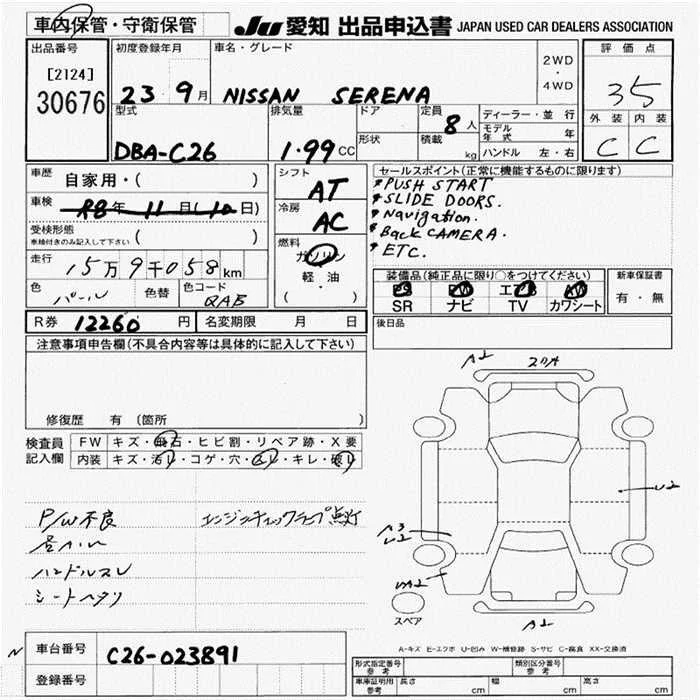 車内保管・守衛保管
JU 愛知 出品申込書 JAPAN USED CAR DEALERS ASSOCIATION
出品番号 [2124] 30676
初度登録年月 23・9月
車名・グレード NISSAN SERENA
2WD・4WD
評価点 35
外装 C 内装 C
型式 DBA-C26
排気量 1.99 CC
ドア
形状
定員 8人
積載 kg
ディーラー・並行
モデル年式 年
ハンドル 左・右
車歴 自家用・( )
車検 R8年 11日(10日)
受検形態 車検付きのみ記入して下さい ( )
走行 15万9千058km
色 パール 色替 色コード QAB
シフト AT
冷房 AC
燃料 ガソリン 軽・油 ( ・ )
セールスポイント(正常に機能するものに限ります)
*PUSH START
*SLIDE DOORS.
*Navigation.
*Back CAMERA.
*ETC.
装備品(純正品に限り○をつけてください)
PS PW エアB AW
SR ナビ TV カワシート
新車保証書 有・無
R券 12260円 名変期限 月 日
後日品
注意事項申告欄(不具合内容等は具体的に記入して下さい)
修復歴 有 (箇所 )
検査員記入欄
FW キズ・飛石・ヒビ割・リペア跡・X要
内装 キズ・汚レ・コゲ・穴・ ・キレ・破レ
P/W不良 エンジンチェックランプ点灯
ハンドルスレ
シートヘタリ
A2
スワA
U2
A3
U2
UA2
A2
スペア
A-キズ E-エクボ U-凹み W-補修跡 S-サビ C-腐食 XX-交換済
N 車台番号 C26-023891
登録番号
形式指定番号 参考 類別区分番号 参考
車庫証明用 参考 長さ cm 幅 cm 高さ cm